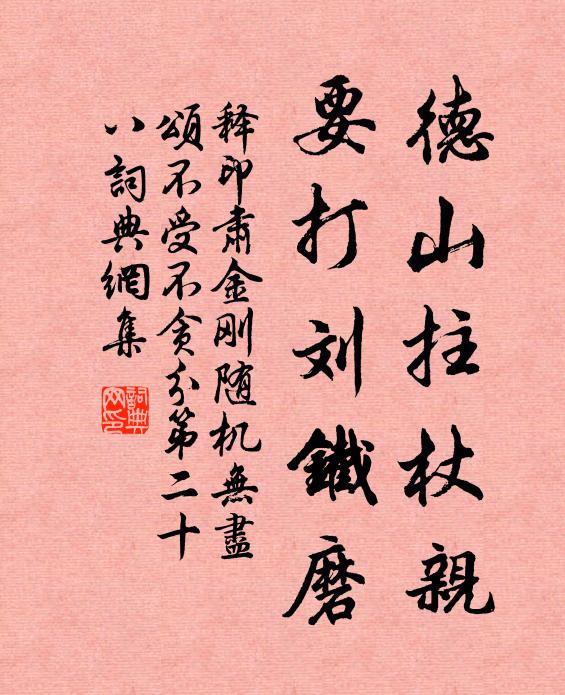 德山拄杖親
要打刘鐵磨
释印肃金刚随机無盡
頌不受不贪分第二十
八詞典網集
詞典网印